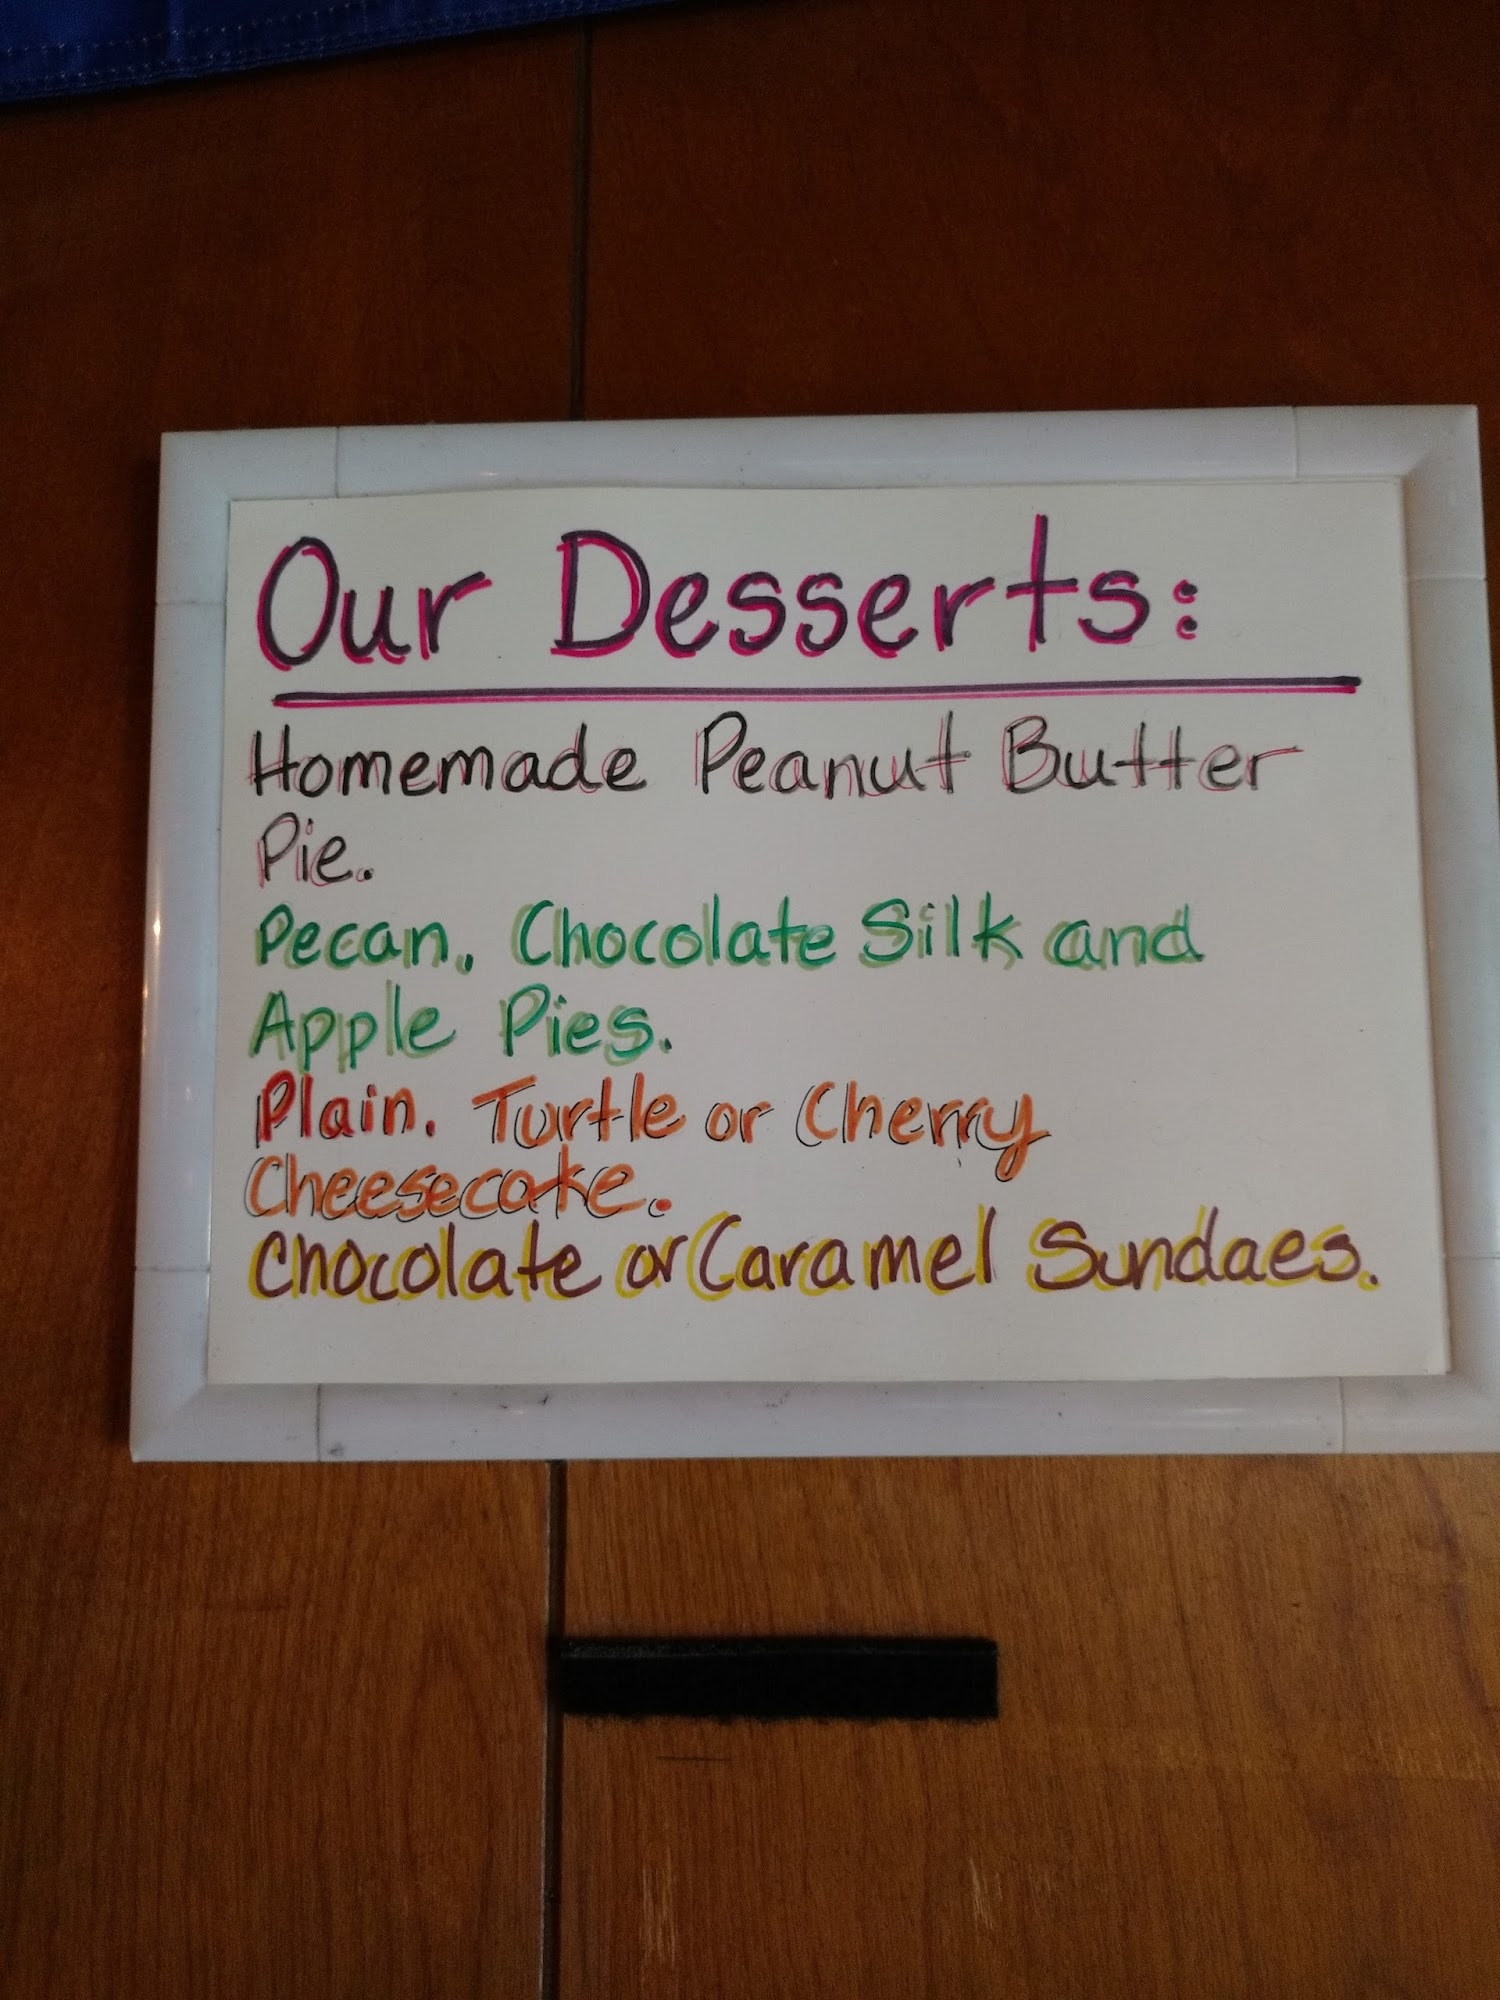 Our Desserts:
Homemade Peanut Butter
Pie.
Pecan. Chocolate Silk and
Apple Pies.
Plain. Turtle or Cherry
Cheesecake.
Chocolate or Caramel Sundaes.